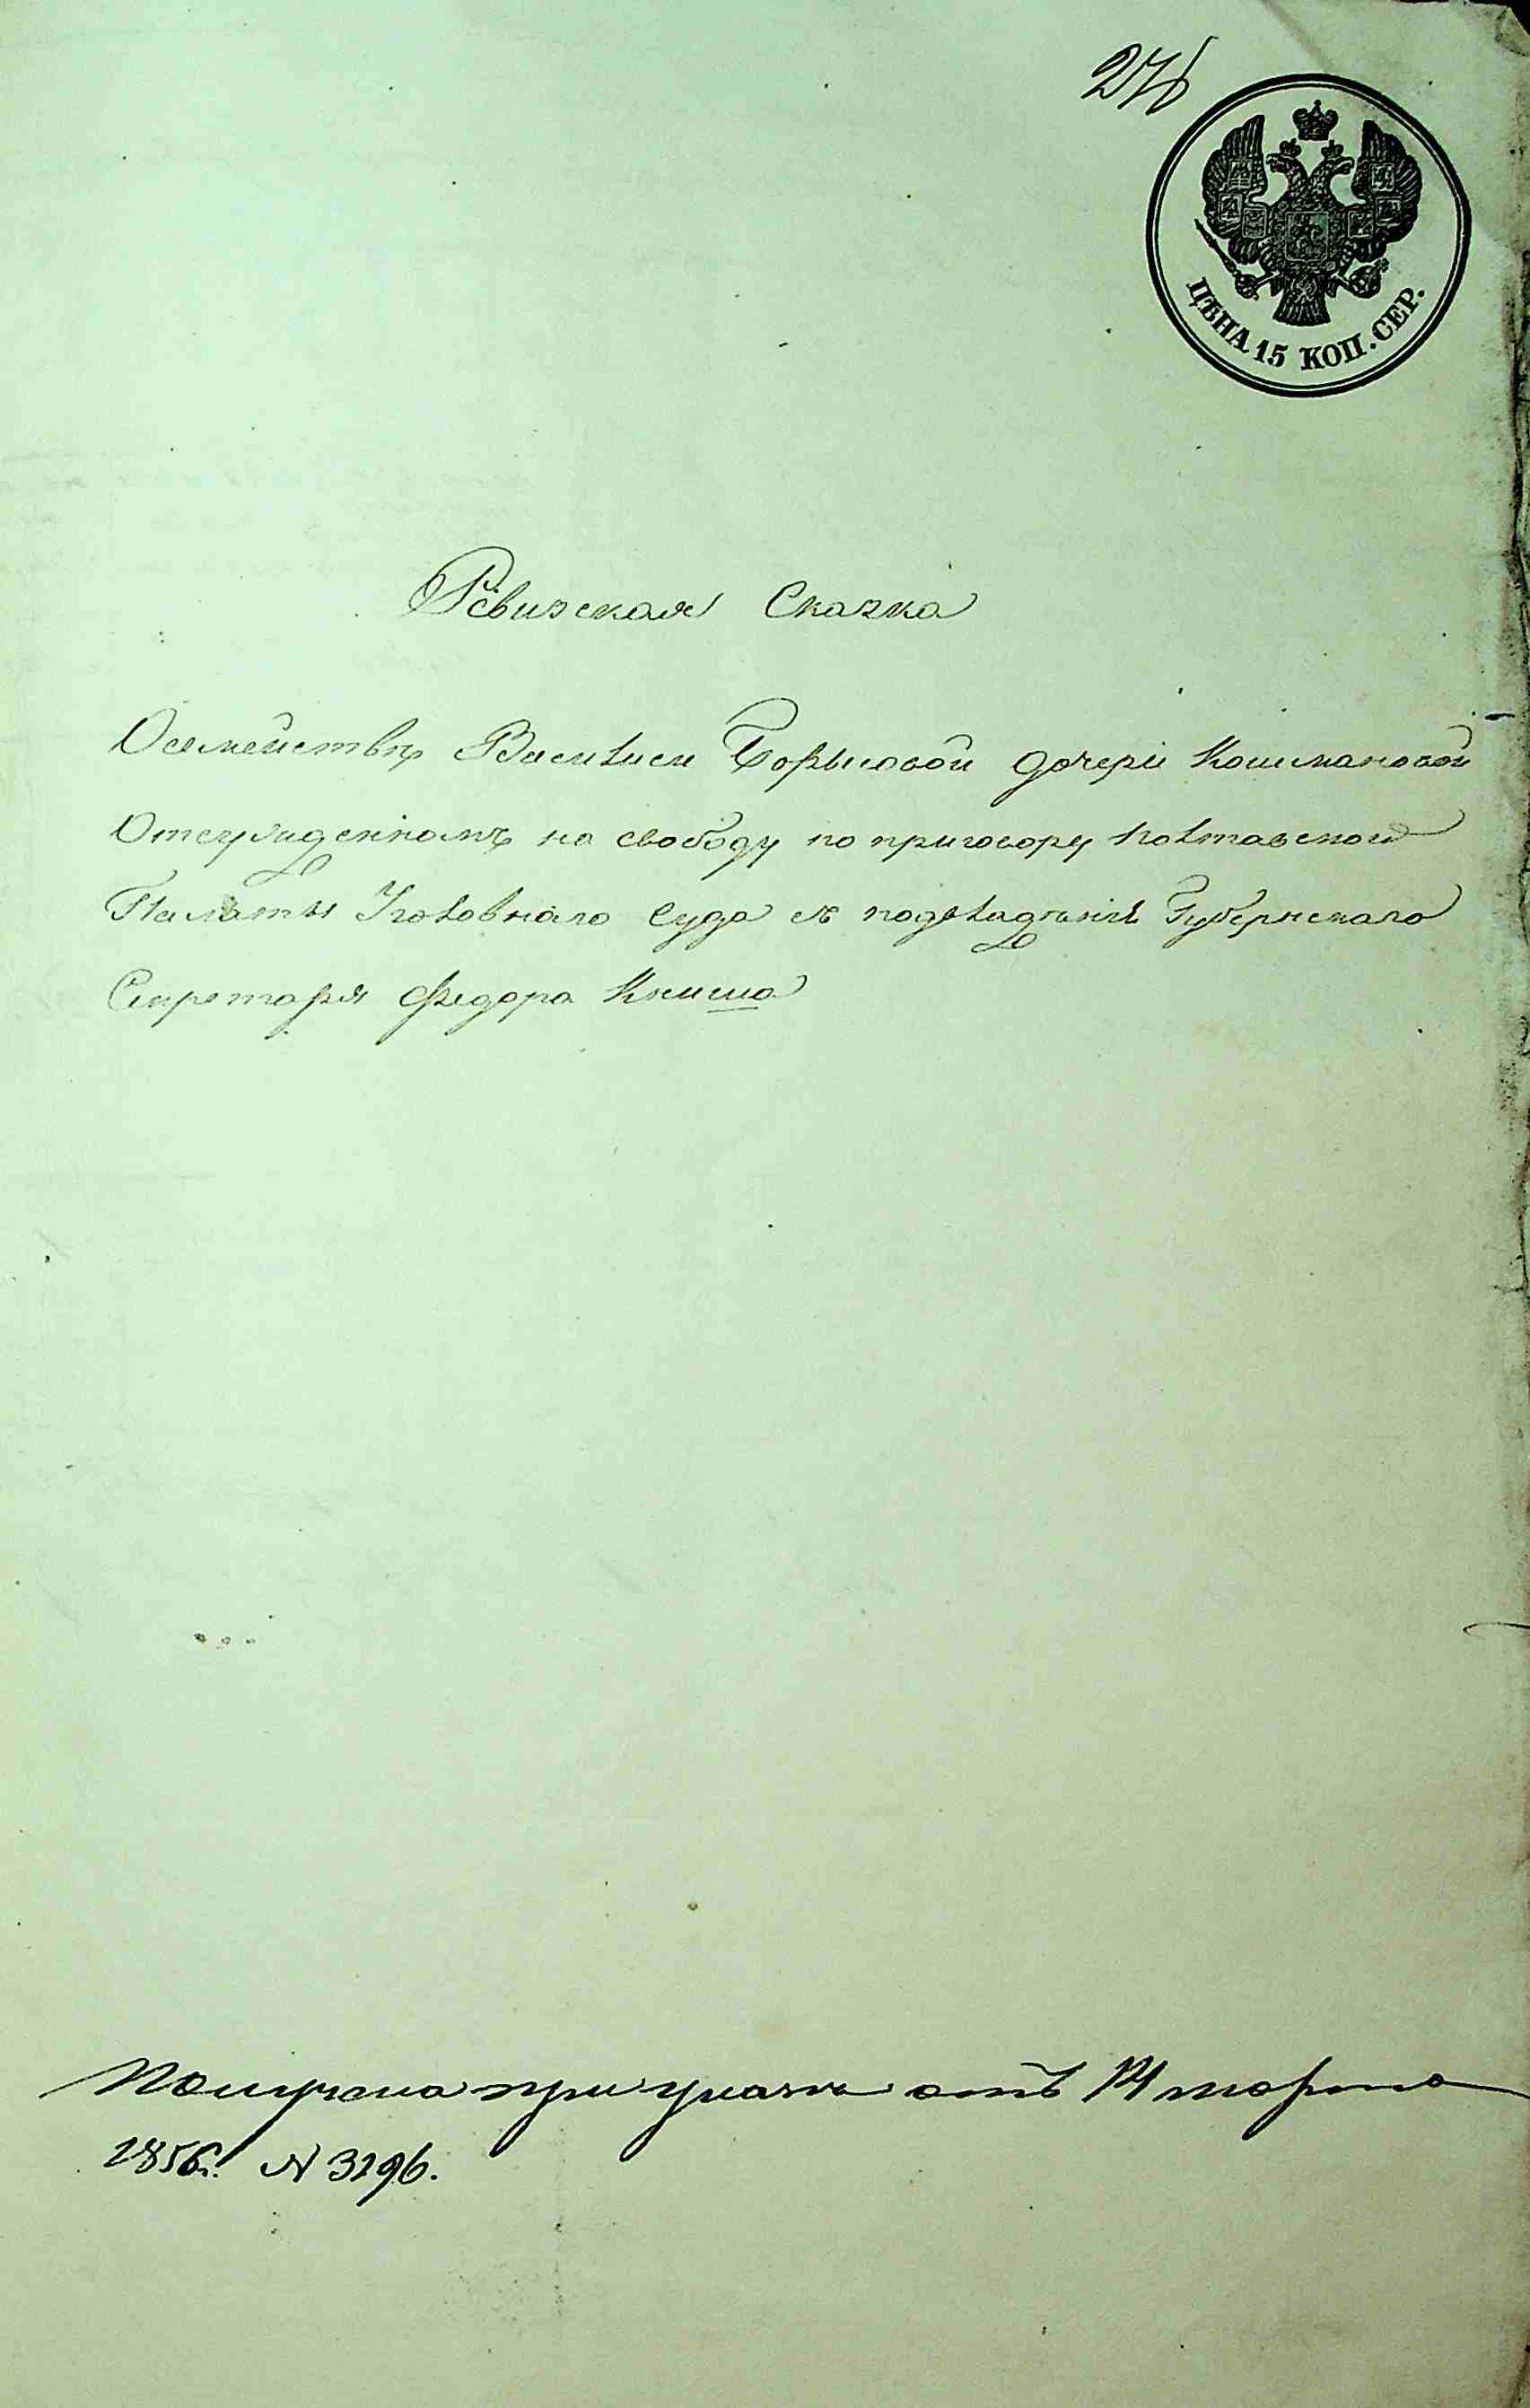 276
ЦѢНА 15 КОП. СЕР.
Ревизская Сказка
Осемействѣ Василисы Борысовой дочери Кошмановой
Отсужденномъ на свободу по приговору Полтавской
Палаты Уголовнаго Суда съ подвладѣнія Губернскаго
Секретаря Федора Книша
Получена при указѣ отъ 14 марта
1856г. № 3296.